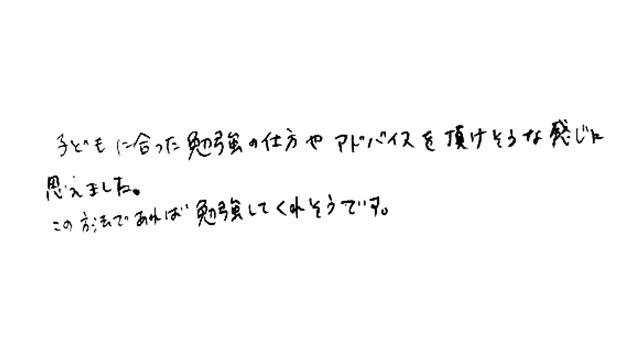 子どもに合った勉強の仕方やアドバイスを頂けそうな感じに
思えました。
この方法であれば勉強してくれそうです。